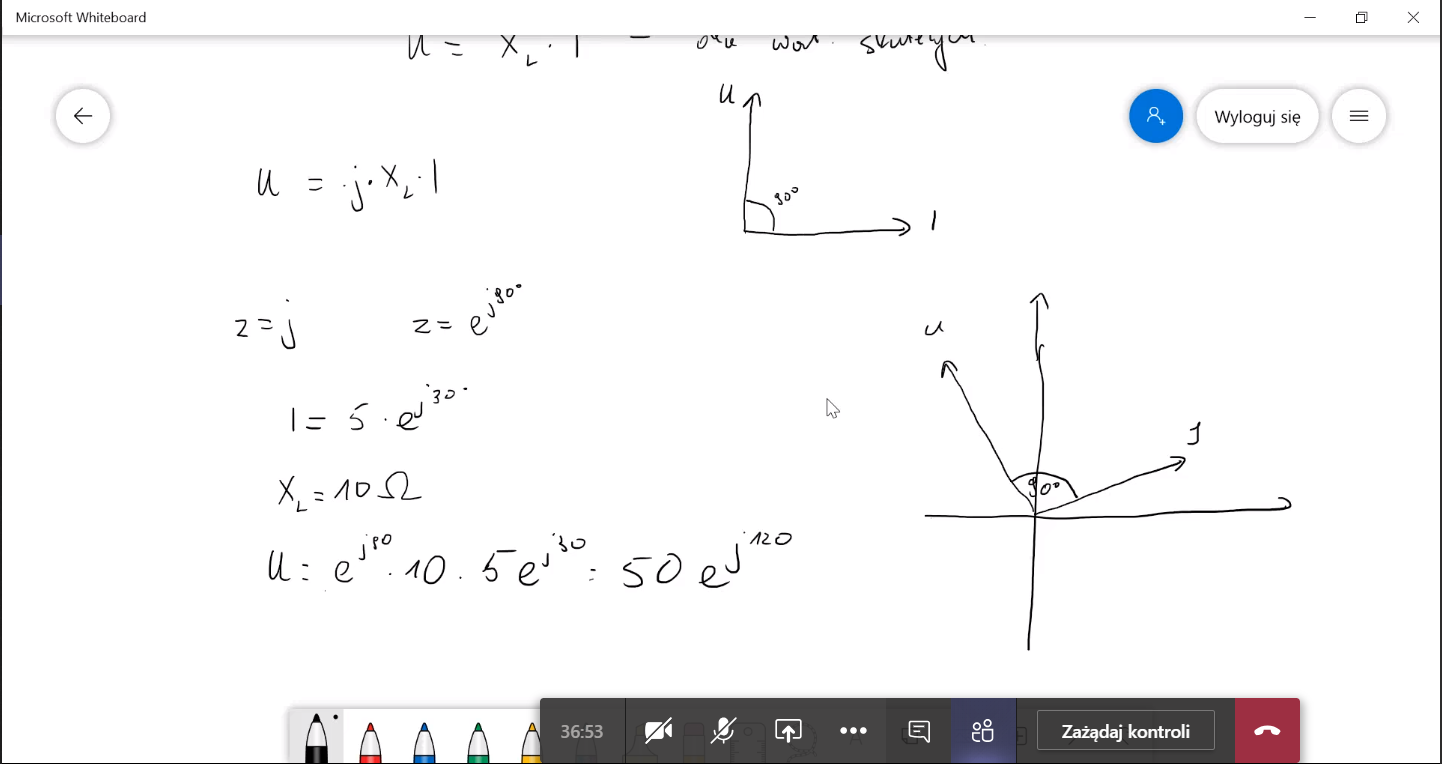 Microsoft Whiteboard
U = X_L · I
Wyloguj się
U
90°
I
U = j · X_L · I
z = j    z = e^{j90°}
I = 5 · e^{j30°}
X_L = 10 Ω
U = e^{j90} · 10 · 5e^{j30} = 50 e^{j120}
U
I
90°
36:53
Zażądaj kontroli